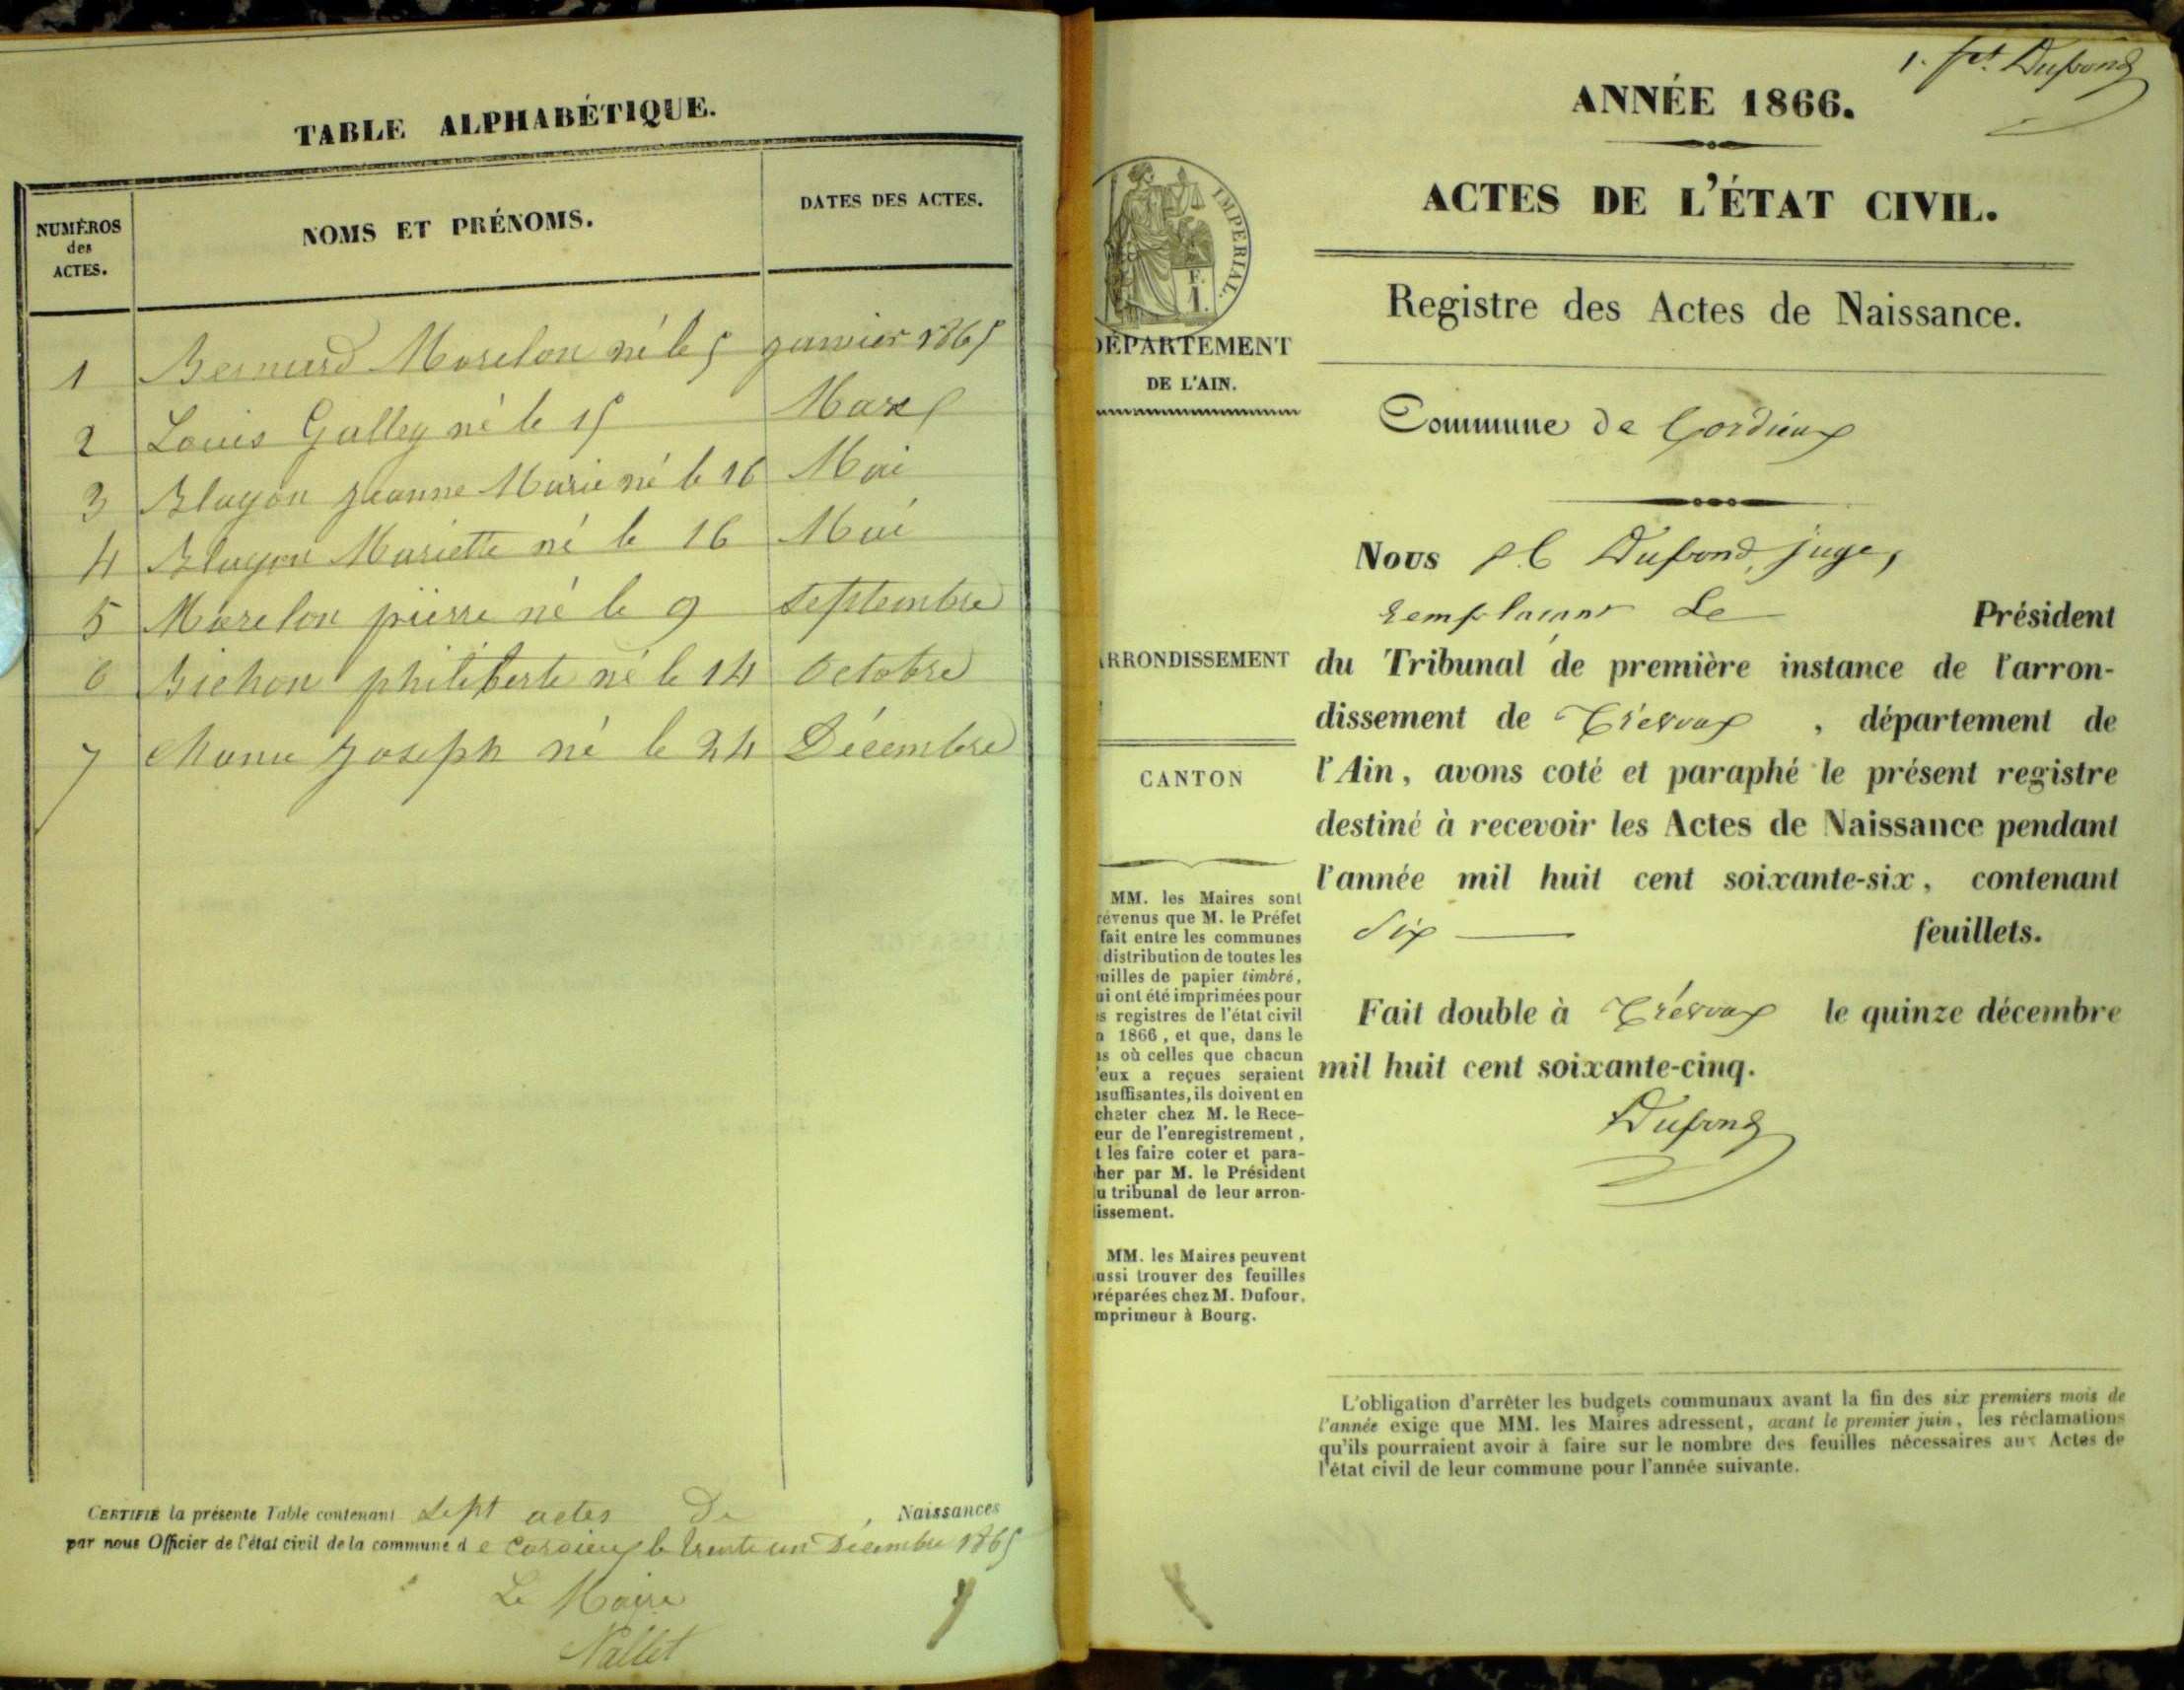 TABLE ALPHABÉTIQUE.
NUMÉROS
des
ACTES.
NOMS ET PRÉNOMS.
DATES DES ACTES.
1 Bernard Morelon né le 5 janvier 1865
2 Louis Galley né le 15 Mars
3 Blayon Jeanne Marie né le 16 Mai
4 Blayon Mariette né le 16 Mai
5 Morelon pierre né le 9 Septembre
6 Bichon philiberte né le 14 Octobre
7 Joseph né le 24 Décembre
CERTIFIÉ la présente Table contenant sept actes De Naissances
par nous Officier de l'état civil de la commune de Cordieux le trente un Décembre 1865
Le Maire
Nallet
1. fet. Dufond
ANNÉE 1866.
ACTES DE L'ÉTAT CIVIL.
Registre des Actes de Naissance.
IMPERIAL.
F.
1.
DÉPARTEMENT
DE L'AIN.
Commune de Cordieux
Nous Dufond, juge,
remplaçant Le Président
ARRONDISSEMENT
du Tribunal de première instance de l'arron-
dissement de Trévoux, département de
l'Ain, avons coté et paraphé le présent registre
destiné à recevoir les Actes de Naissance pendant
l'année mil huit cent soixante-six, contenant
Six feuillets.
Fait double à Trévoux le quinze décembre
mil huit cent soixante-cinq.
Dufond
CANTON
MM. les Maires sont
révenus que M. le Préfet
fait entre les communes
distribution de toutes les
uilles de papier timbré,
ui ont été imprimées pour
s registres de l'état civil
n 1866, et que, dans le
as où celles que chacun
'eux a reçues seraient
nsuffisantes, ils doivent en
cheter chez M. le Rece-
eur de l'enregistrement,
t les faire coter et para-
her par M. le Président
u tribunal de leur arron-
issement.
MM. les Maires peuvent
ussi trouver des feuilles
réparées chez M. Dufour,
mprimeur à Bourg.
L'obligation d'arrêter les budgets communaux avant la fin des six premiers mois de
l'année exige que MM. les Maires adressent, avant le premier juin, les réclamations
qu'ils pourraient avoir à faire sur le nombre des feuilles nécessaires aux Actes de
l'état civil de leur commune pour l'année suivante.